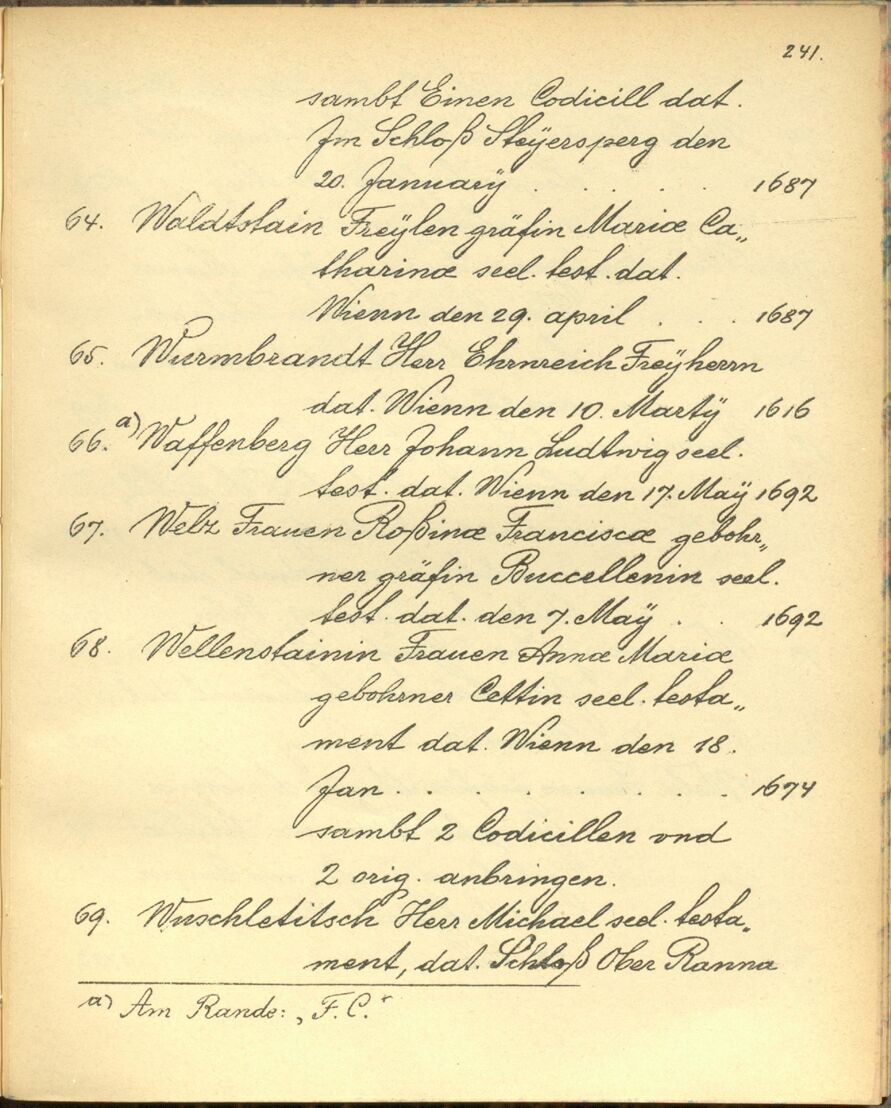 241.
sambt Einen Codicill dat.
Im Schloß Steÿersperg den
20. Januarÿ . . . . . 1687
64. Waldtstain Freÿlen gräfin Mariæ Ca„
tharinæ seel. test. dat.
Wienn den 29. april . . . 1687
65. Wurmbrandt Herr Ehrnreich Freÿherrn
dat. Wienn den 10. Martÿ 1616
66. a) Waffenberg Herr Johann Ludtwig seel.
test. dat. Wienn den 17. Maÿ 1692
67. Welz Frauen Roßinæ Franciscæ gebohr„
ner gräfin Buccellenin seel.
test. dat. den 7. Maÿ . . 1692
68. Wellenstainin Frauen Annæ Mariæ
gebohrner Cettin seel. testa„
ment dat. Wienn den 18.
Jan . . . . . . . . 1674
sambt 2 Codicillen vnd
2 orig. anbringen.
69. Wuschletitsch Herr Michael seel. testa„
ment, dat. Schloß Ober Ranna
a) Am Rande: „F. C."